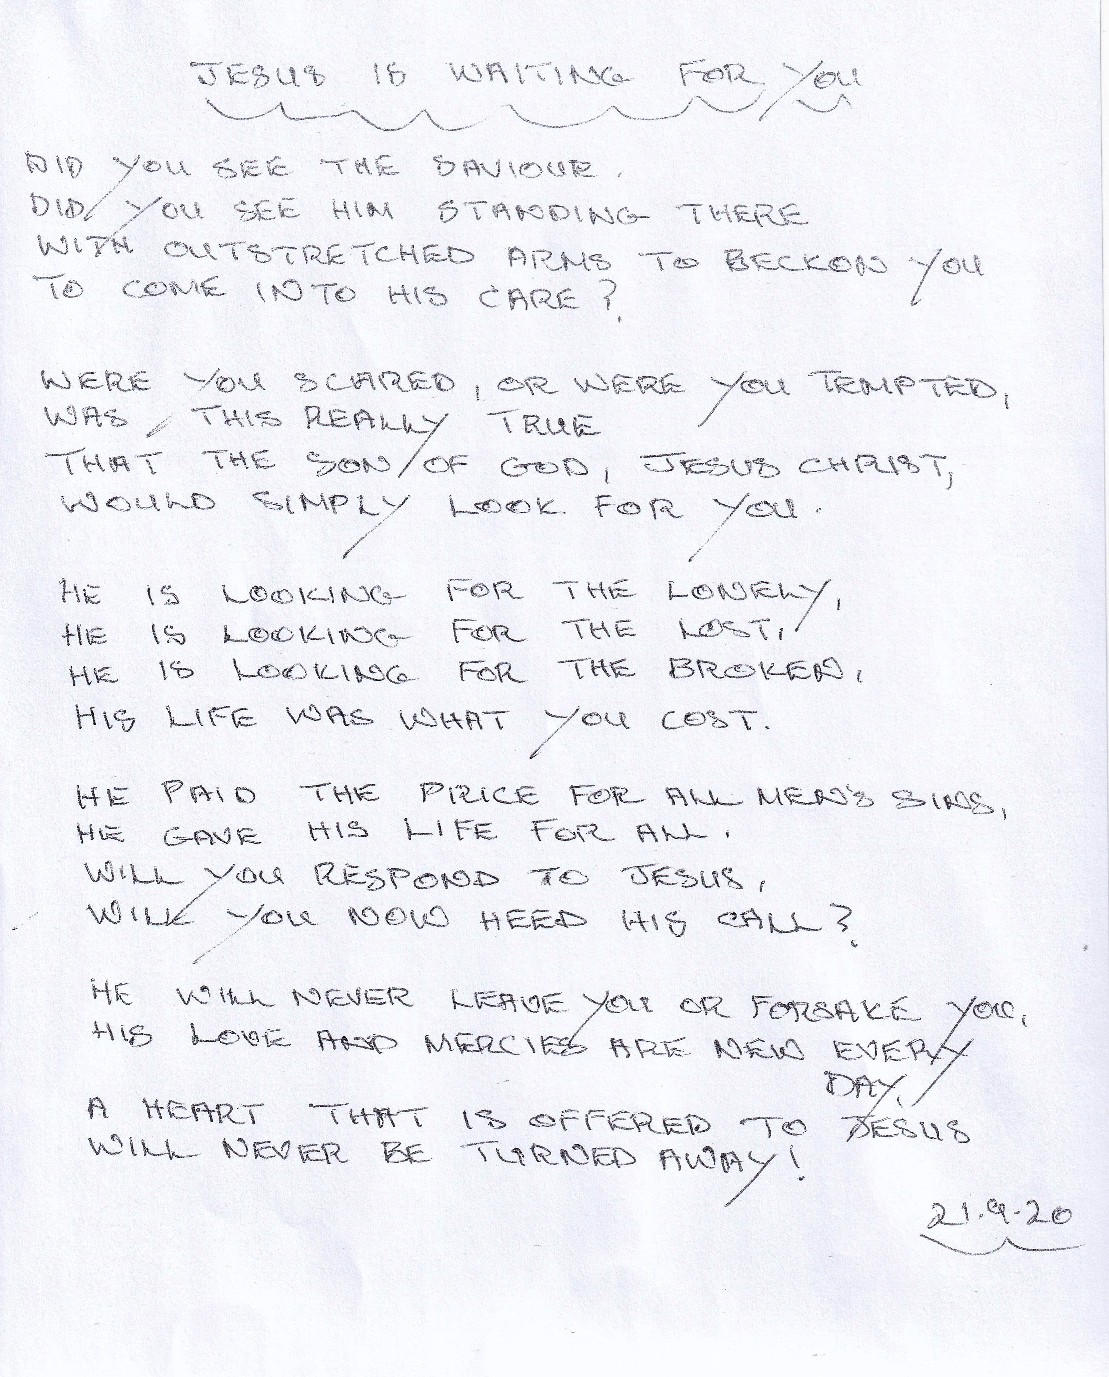 JESUS IS WAITING FOR YOU
DID YOU SEE THE SAVIOUR.
DID YOU SEE HIM STANDING THERE
WITH OUTSTRETCHED ARMS TO BECKON YOU
TO COME INTO HIS CARE?
WERE YOU SCARED, OR WERE YOU TEMPTED,
WAS THIS REALLY TRUE
THAT THE SON OF GOD, JESUS CHRIST,
WOULD SIMPLY LOOK FOR YOU.
HE IS LOOKING FOR THE LONELY,
HE IS LOOKING FOR THE LOST,
HE IS LOOKING FOR THE BROKEN,
HIS LIFE WAS WHAT YOU COST.
HE PAID THE PRICE FOR ALL MEN'S SINS,
HE GAVE HIS LIFE FOR ALL.
WILL YOU RESPOND TO JESUS,
WILL YOU NOW HEED HIS CALL?
HE WILL NEVER LEAVE YOU OR FORSAKE YOU,
HIS LOVE AND MERCIES ARE NEW EVERY
DAY.
A HEART THAT IS OFFERED TO JESUS
WILL NEVER BE TURNED AWAY!
21.9.20